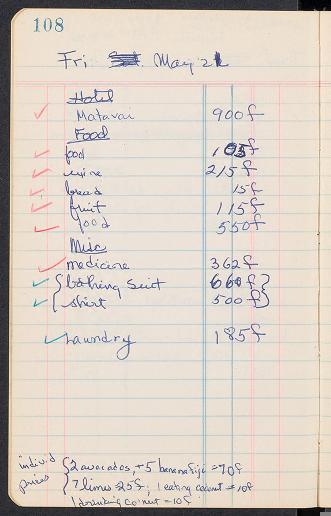 108
Fri May 21
Hotel
Matavai 900f
Food
food 105f
wine 215f
bread 15f
fruit 115f
food 550f
Misc
medicine 362f
bathing suit 660f
shirt 500f
Laundry 185f
individ prices
2 avocados, + 5 bananas fiji = 70f
7 limes = 25f; 1 eating coconut = 10f
1 drinking coconut = 10f